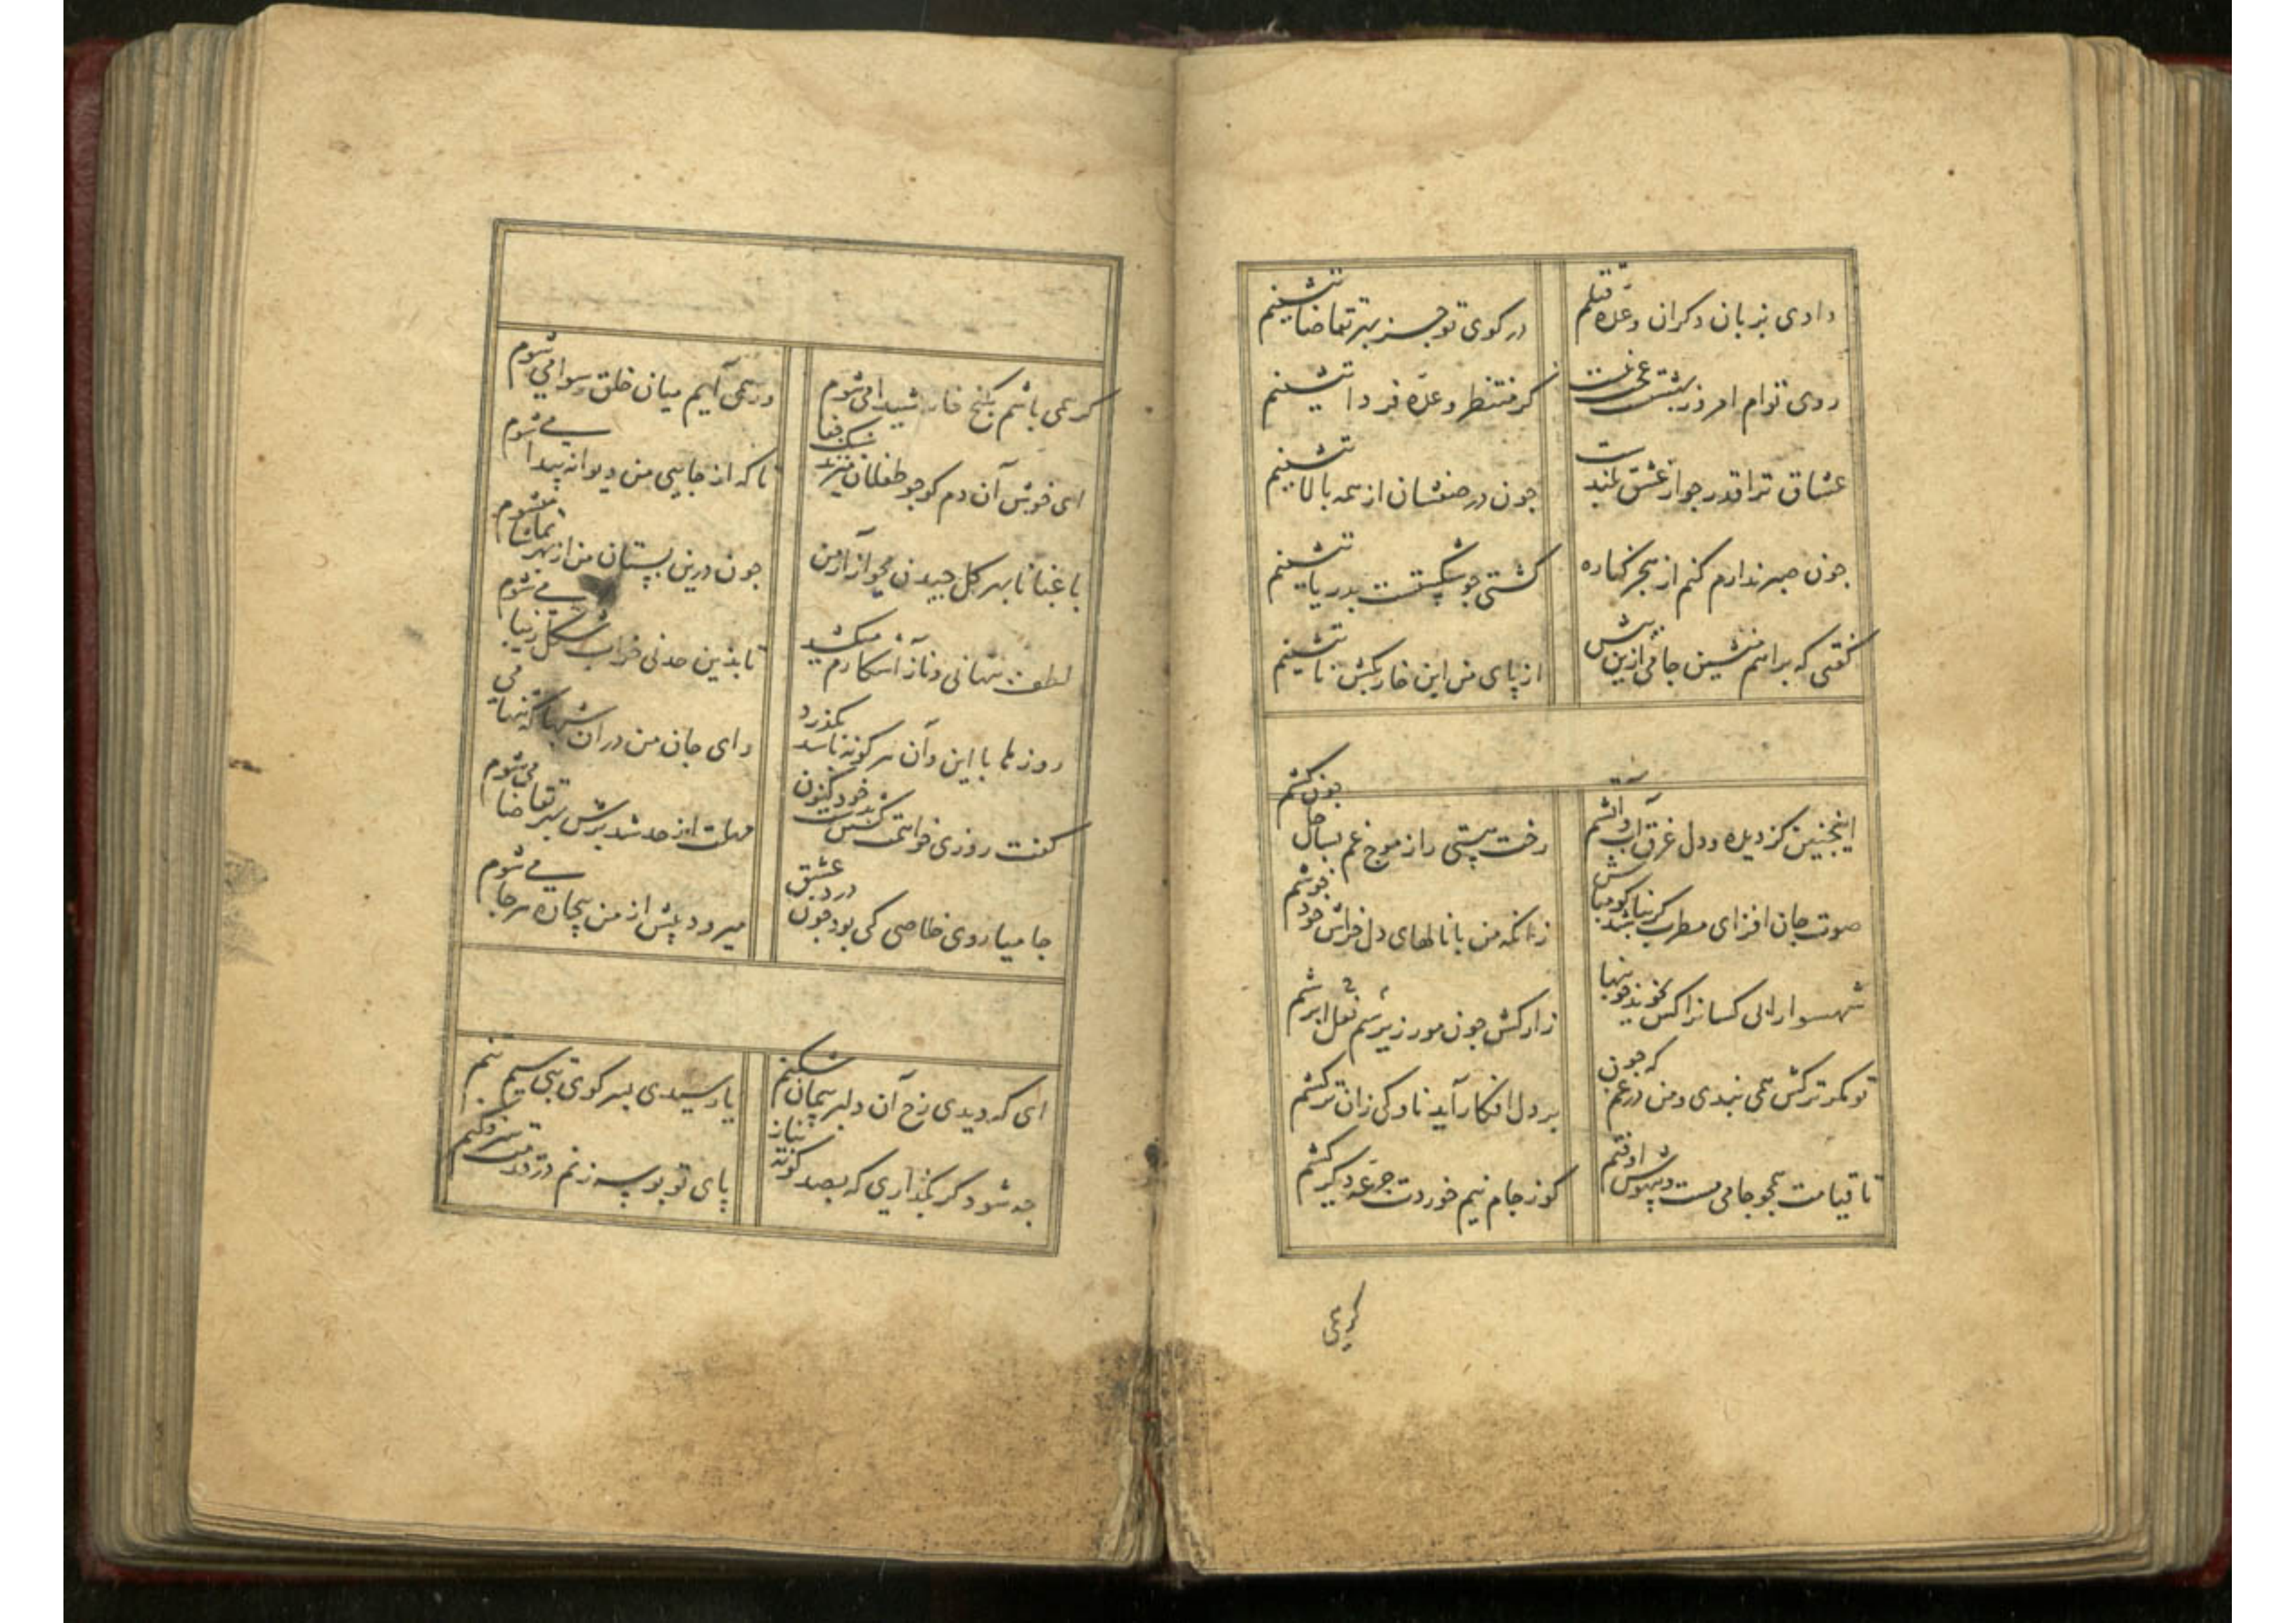 دادی بزبان دکران وعدّه قتلم
در کوی تو جز بهر تقاضا ننشینم
روی توام امروز بهشتست
کر منتظر وعدّه فردا ننشینم
عشاق ترا قدر جو از عشق بلندست
جون در صفشان از همه بالا ننشینم
جون صبر ندارم کنم از بحر کناره
کشتی جو شکستست بدریا ننشینم
کفتی که براهم منشین جامی ازین بیش
از پای من این خار بکش تا ننشینم
اینجنین کز دیده و دل غرق آب و آتشم
رخت هستی را ز موج غم بساحل جون کشم
صوت جان افزای مطرب کر نباشد کو مباش
زانکه من با نالهای دل خراش خود خوشم
شهسوارا
زار کش جون مور زیر سم نعل ابرشم
تو کمر ترکش همی بندی و من در غم که جون
بر دل افکار آید ناوکی زان ترکشم
تا قیامت همجو جامی مست و بیهوش اوفتم
کر ز جام نیم خوردت جرعه دیکر کشم
کر همی
کر همی باشم بکنج خانه شیدا می شوم
ور همی آیم میان خلق رسوا می شوم
ای خوش آن دم کو جو طفلان میزند سنک جفا
تا که از جایی من دیوانه پیدا می شوم
باغبانا بهر کل جیدن مجو آزار من
جون درین بستان من از بهر تماشا میشوم
لطف پنهانی و ناز آشکارم میکشد
تا بدین حد نی خراب شکل زیبا می شوم
روزها با این و آن هر کونه باشد بکذرد
وای جان من در آن شبها که تنها می
کفت روزی خواهمت کشتن شد خود کنون
مهلت از حد شد برش بهر تقاضا می شوم
جامیا روی خلاصی کی بود جون درد عشق
میرود پیش از من بیجاره هر جا می شوم
ای که دیدی رخ آن دلبر پیمان شکنم
یا رسیدی بسر کوی بت سیم تنم
جه شود کر بکذاری که بصد کونه نیاز
پای تو بوسه زنم در قدمت سر فکنم